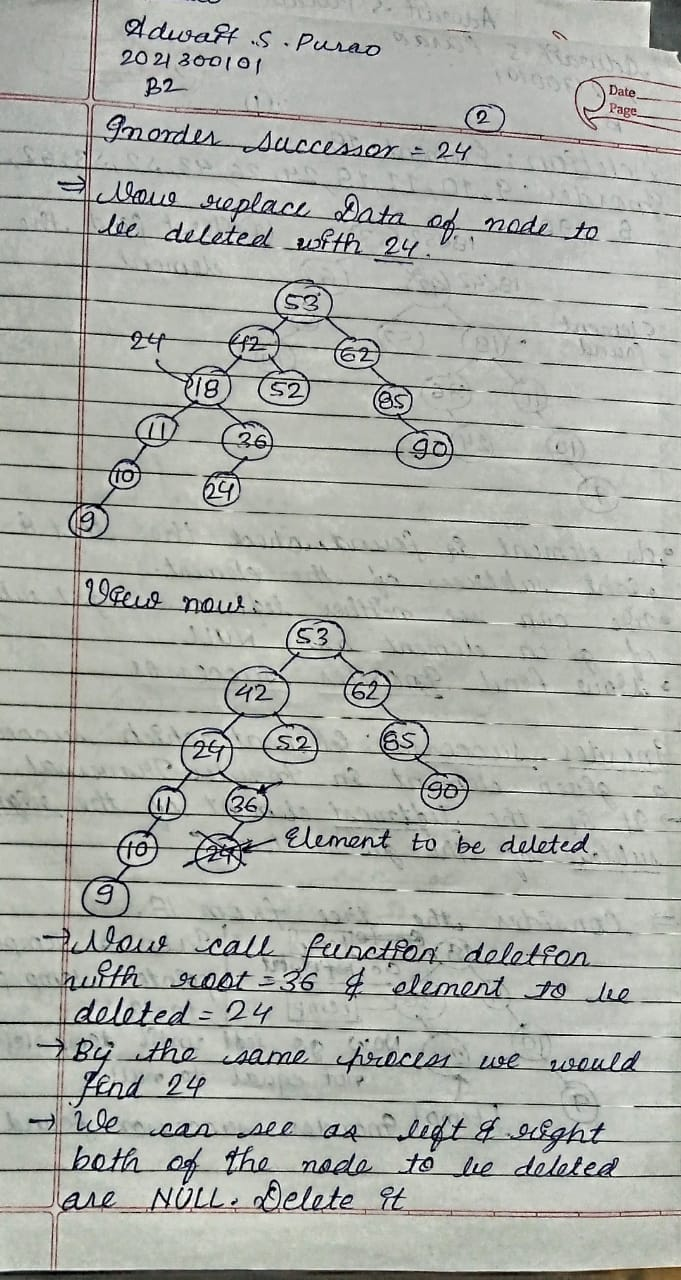 Adwait .S. Purao
2021300101
B2
Date
Page
2
Inorder successor = 24
⇒ Now replace Data of node to
be deleted with 24.
53
24 42 62
18 52 85
11 36 90
10 24
9
View now:
53
42 62
24 52 85
11 36 90
10 24 ← Element to be deleted.
9
→ Now call function deletion
with root = 36 & element to be
deleted = 24
→ By the same process we would
find 24
→ We can see as left & right
both of the node to be deleted
are NULL. Delete it